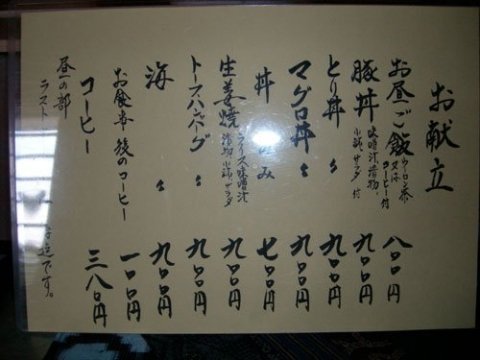 お献立
お昼ご飯 ウーロン茶 又は コーヒー付 八〇〇円
豚丼 味噌汁 漬物 小鉢、サラダ 付 九〇〇円
とり丼 〃 九〇〇円
マグロ丼 〃 九〇〇円
丼 のみ 七〇〇円
生姜焼 ライス 味噌汁 漬物 小鉢 サラダ 九〇〇円
トーフハンバーグ 〃 九〇〇円
海 〃 九〇〇円
お食事後のコーヒー 一〇〇円
コーヒー 三八〇円
昼の部
ラスト 迄です。